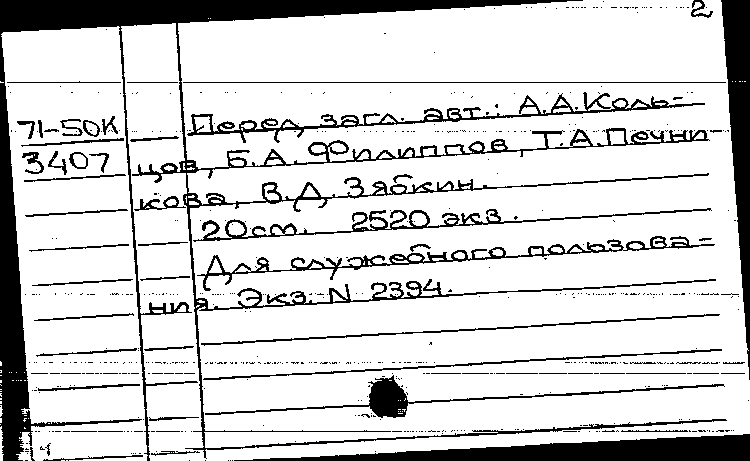 2
71-50К Перед загл. авт.: А.А.Коль-
3407 цов, Б.А. Филиппов, Т.А.Печни-
кова, В.Д. Зябкин.
20см. 2520 экз.
Для служебного пользова-
ния. Экз. N 2394.
4